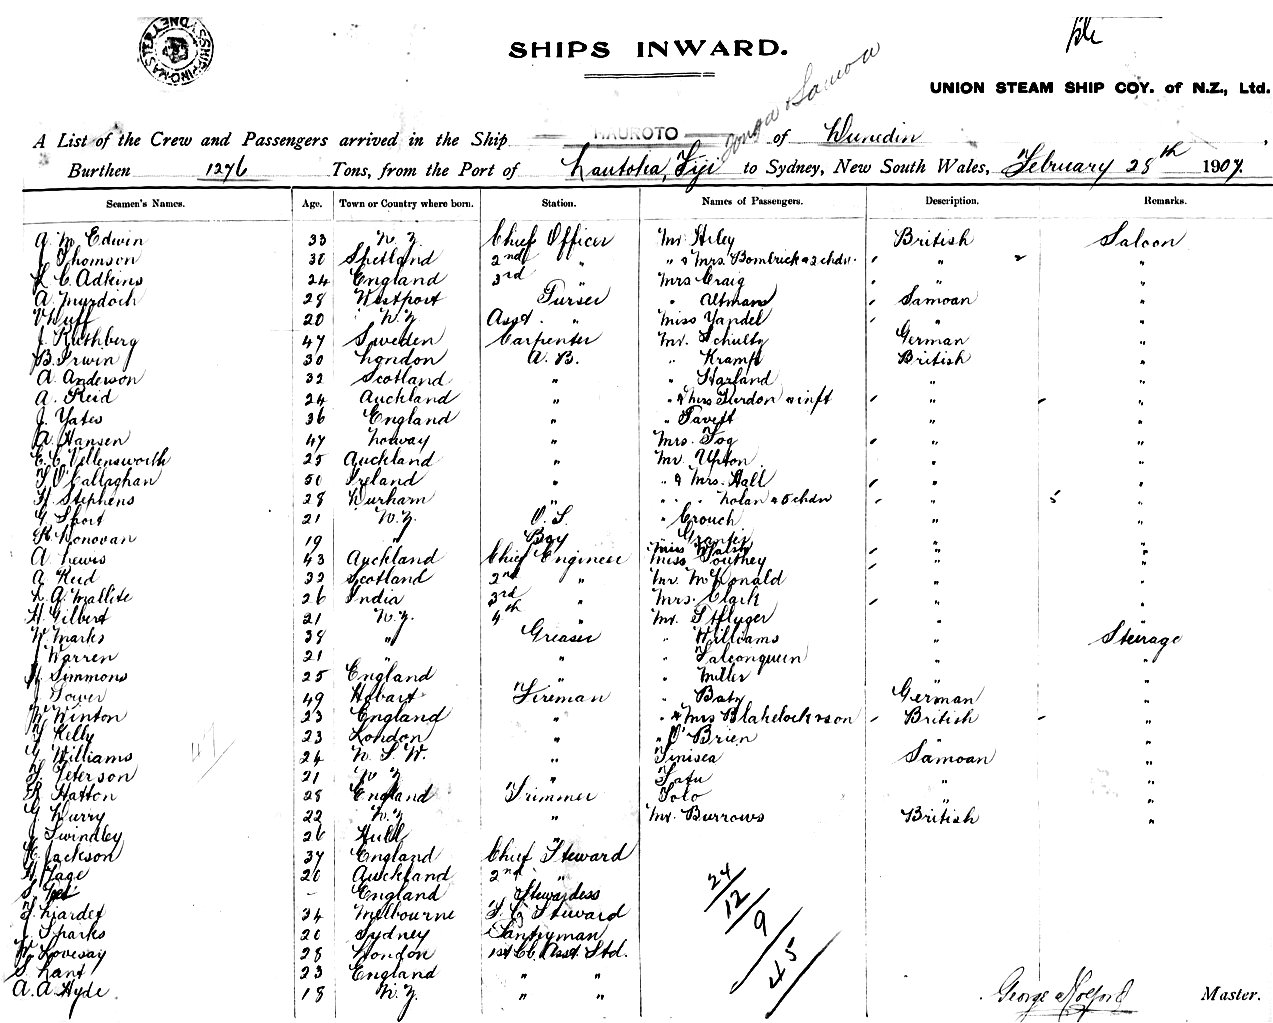 SHIPPING MASTER SYDNEY
SHIPS INWARD.
Tonga & Samoa
UNION STEAM SHIP COY. of N.Z., Ltd.
A List of the Crew and Passengers arrived in the Ship HAUROTO of Dunedin,
Burthen 1276 Tons, from the Port of Lautoka, Fiji to Sydney, New South Wales, February 28th 1907.
Seamen's Names. Age. Town or Country where born. Station. Names of Passengers. Description. Remarks.
A. M. Edwin 33 N.Z. Chief Officer Mr. Hiley British Saloon
J. Thomson 30 Shetland 2nd " " & Mrs. Bombrick & 2 chdn. " 2 "
L. C. Adkins 24 England 3rd " Mrs Craig " "
A. Murdoch 28 Westport Purser " Utman Samoan "
V. Huff 20 N.Z. Asst. " Miss Yandel " "
J. Ruthberg 47 Sweden Carpenter Mr. Schultz German "
B. Irwin 30 London A. B. " Krampt British "
A. Anderson 32 Scotland " " Harland " "
A. Reid 24 Auckland " " & Mrs Gurdon & inft " "
J. Yates 36 England " " Tavett " "
A. Hansen 47 Norway " Mrs. Fog " "
E. C. Vellensworth 25 Auckland " Mr. Upton " "
T. O'Callaghan 50 Ireland " " & Mrs. Hall " "
H. Stephens 28 Durham " " " " Nolan & 5 chdn " 5 "
G. Short 21 N.Z. O. S. " Crouch " "
R. Donovan 19 " Boy " "
A. Lewis 43 Auckland Chief Engineer Miss Walsh " "
Miss Southey
A. Reid 32 Scotland 2nd " Mr. McDonald " "
L. A. Mallite 26 India 3rd " Mrs. Clark " "
H. Gilbert 21 N.Z. 4th " Mr. Pfluger " "
W. Marks 38 " Greaser " Williams " Steerage
J. Warren 21 " " " " "
H. Simmons 25 England " " Miller " "
J. Gower 49 Hobart Fireman " Baty German "
W. Winton 23 England " " & Mrs Blakelock & son British "
T. Kelly 23 London " " O'Brien " "
G. Williams 24 N. S. W. " Sinisea Samoan "
F. Peterson 21 N.Z. " Tafu " "
R. Hatton 28 England Trimmer Solo " "
G. Durry 22 N.Z. " Mr. Burrows British "
J. Swindley 26 Hull "
C. Jackson 37 England Chief Steward
H. Page 20 Auckland 2nd "
- England Stewardess
F. Liardet 34 Melbourne F. C. Steward
J. Sparks 20 Sydney Pantryman
W. Lovesay 28 London 1st Cl. Asst. Std.
S. Lant 23 England " "
A. A. Hyde 18 N.Z. " "
47
24
12
9
45
George Holford Master.